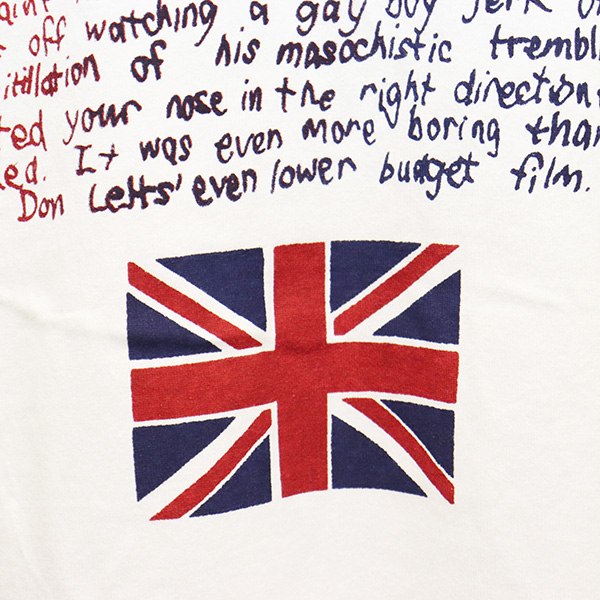 off watching a gay boy jerk
of his masochistic
your nose in the right direction
It was even more boring than
Don Letts' even lower budget film.